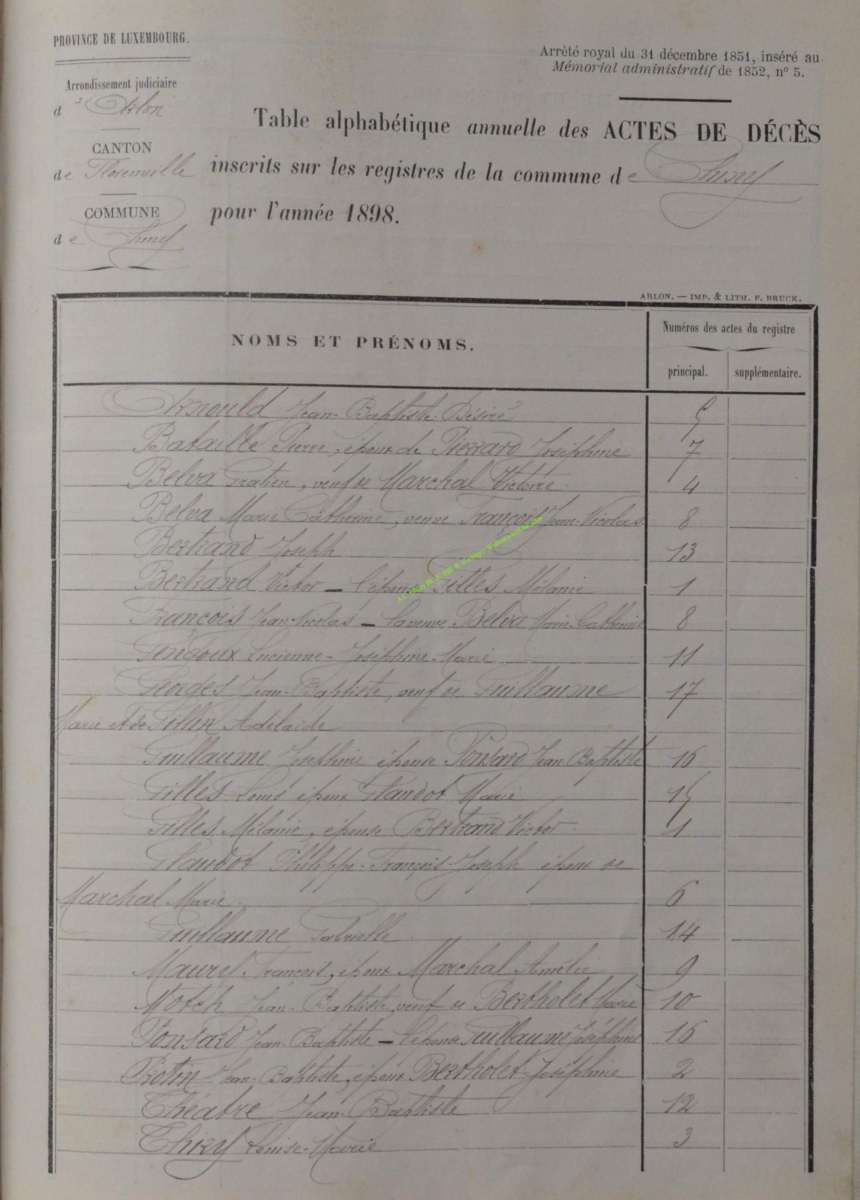 PROVINCE DE LUXEMBOURG.
Arrondissement judiciaire
d'Arlon
CANTON
de Florenville
COMMUNE
de Chiny
Arrêté royal du 31 décembre 1851, inséré au
Mémorial administratif de 1852, n° 5.
Table alphabétique annuelle des ACTES DE DÉCÈS
inscrits sur les registres de la commune de Chiny
pour l'année 1898.
ARLON. — IMP. & LITH. F. BRUCK.
NOMS ET PRÉNOMS.
Numéros des actes du registre
principal. supplémentaire.
Arnould Jean-Baptiste-Désiré 5
Bataille Pierre, époux de Pierrard Joséphine 7
Belva Gratien, veuf de Marchal Victoire 4
Belva Marie Catherine, veuve François Jean-Nicolas 8
Bertrand Joseph 13
Bertrand Victor – l'épouse Gilles Mélanie 1
François Jean-Nicolas – la veuve Belva Marie Catherine 8
Lucienne-Joséphine-Marie 11
Georges Jean-Baptiste, veuf de Guillaume 17
Marie et de Gillin Adelaïde
Guillaume Joséphine épouse Ponsard Jean Baptiste 16
Gilles Louis époux Glaudot Marie 15
Gilles Mélanie, épouse Bertrand Victor 1
Glaudot Philippe-François-Joseph époux de
Marchal Marie. 6
Guillaume Gabrielle 14
François, époux Marchal Amélie 9
Jean-Baptiste, veuf de Bertholet Marie 10
Ponsard Jean Baptiste – l'épouse Guillaume Joséphine 16
Protin Jean-Baptiste, époux Bertholet Joséphine 2
Théatre Jean-Baptiste 12
Thiry Louise-Marie 3